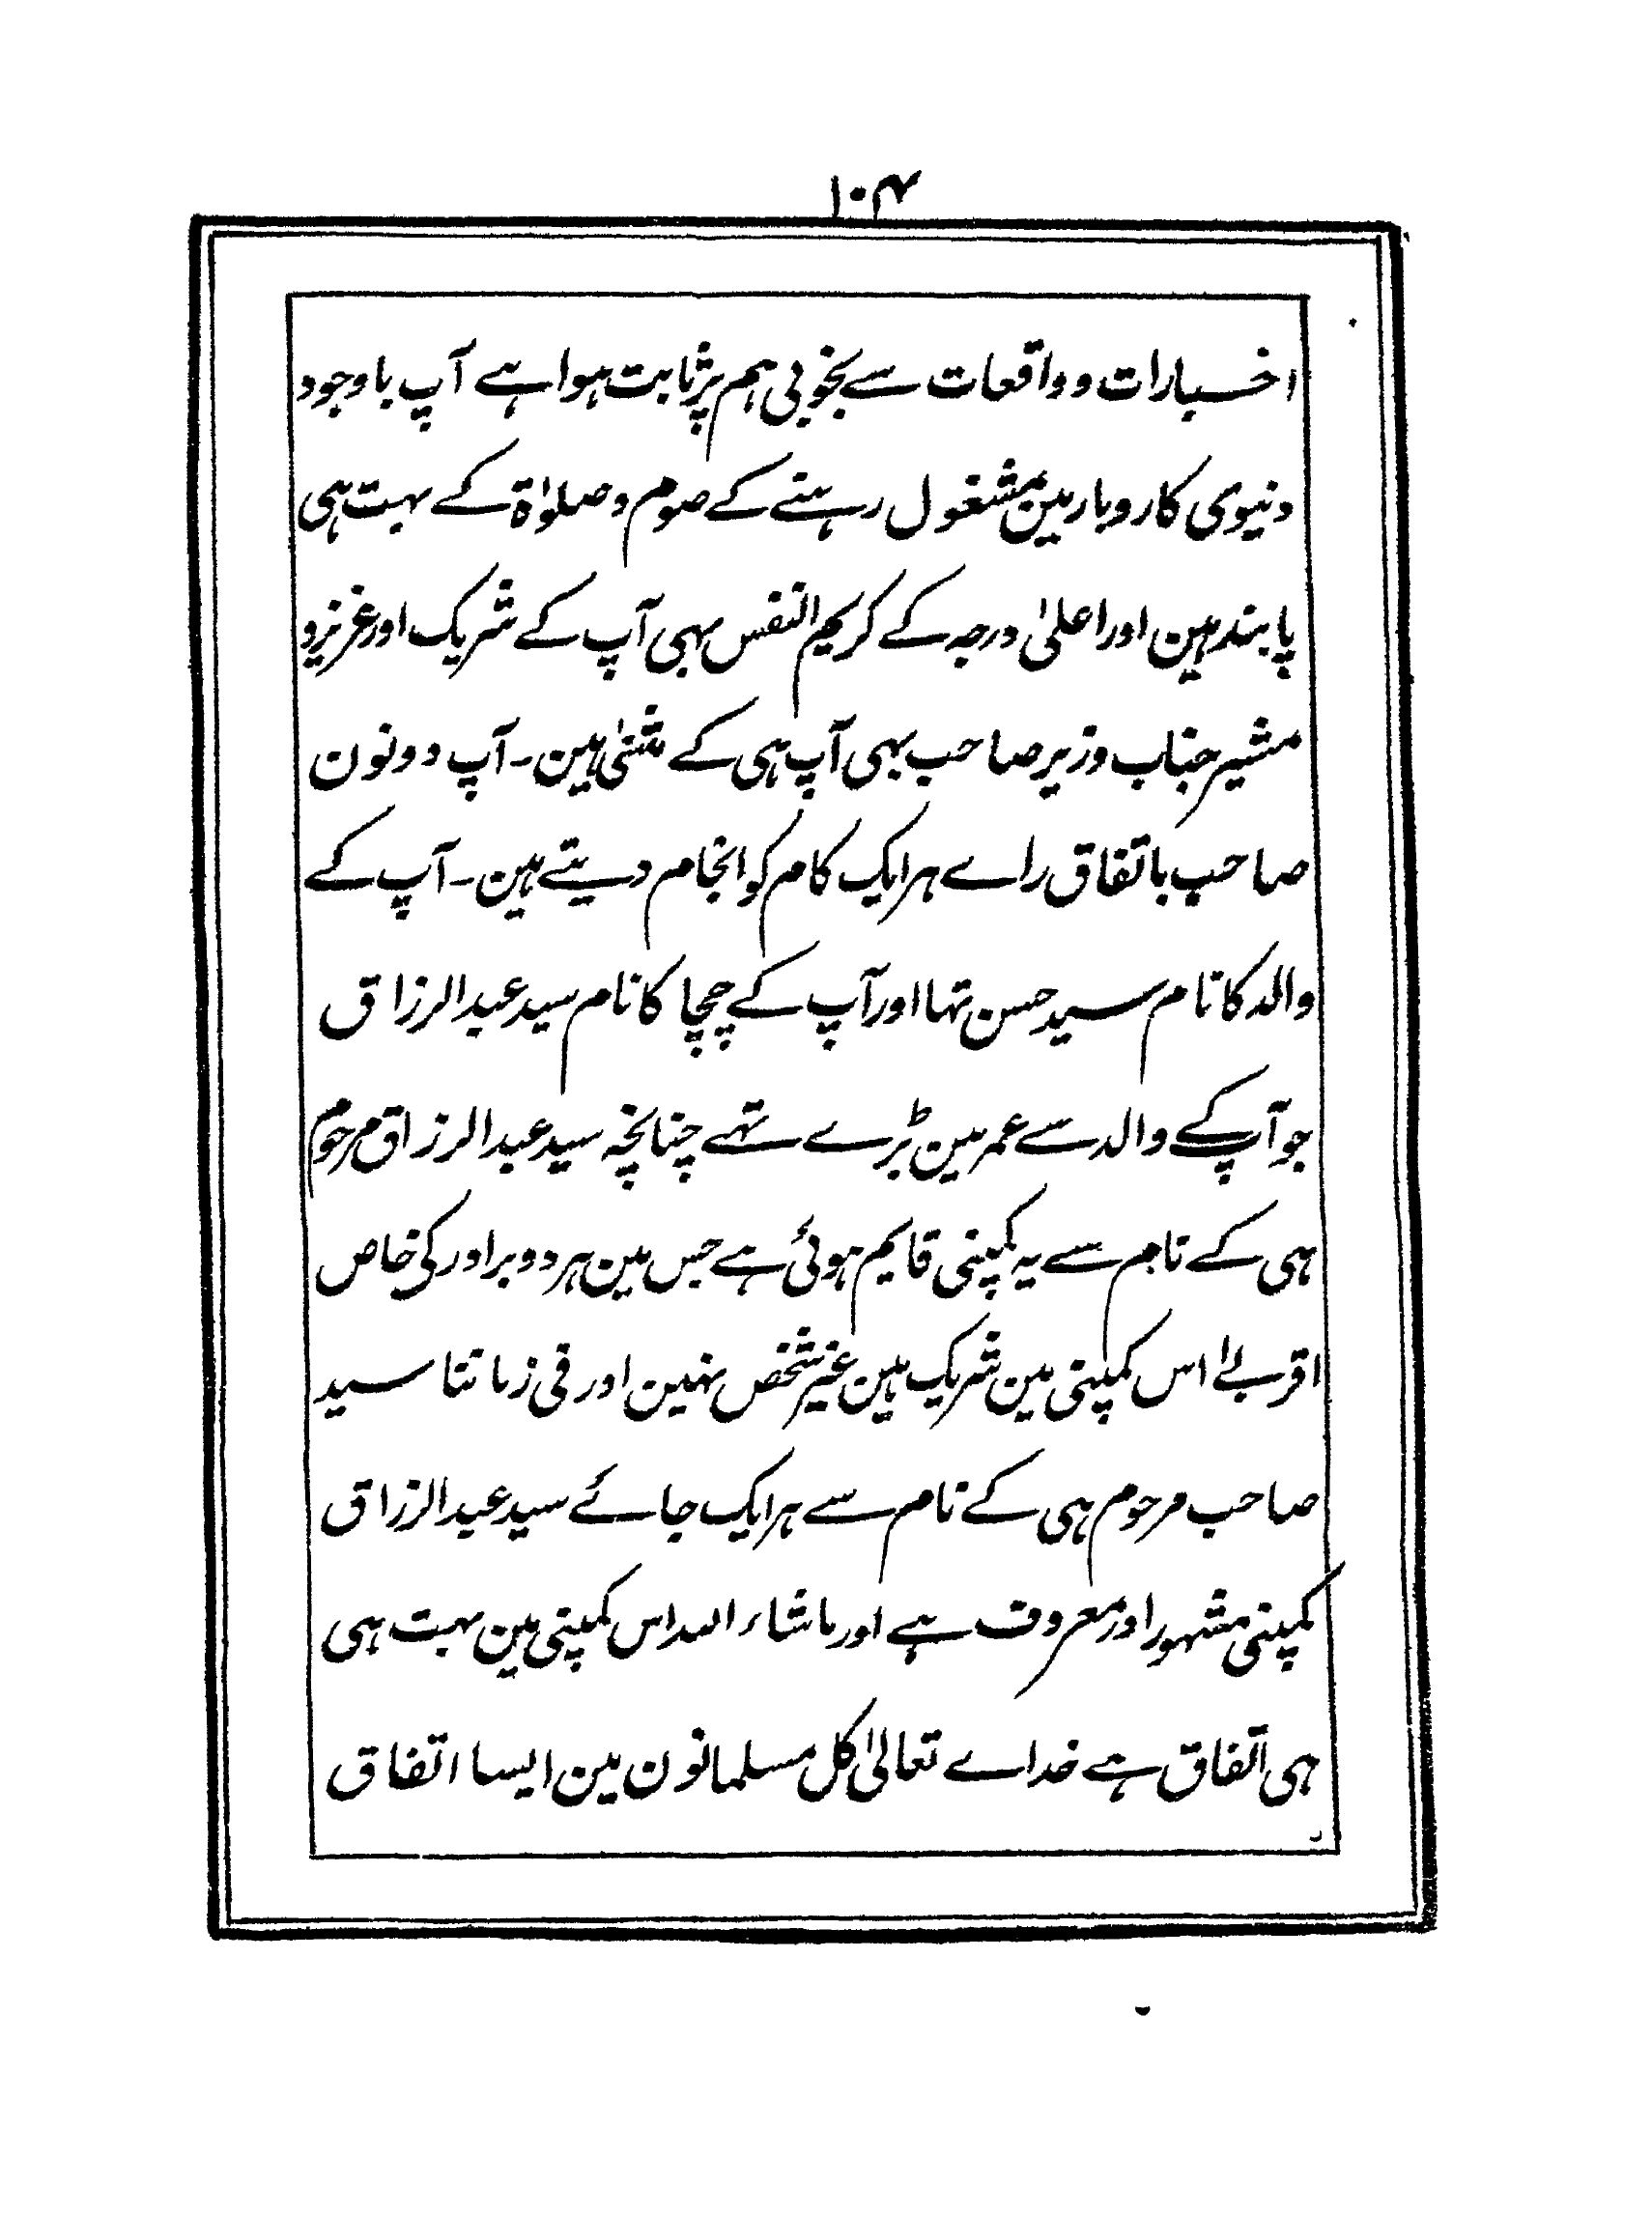 ۱۰۴
اخبارات و واقعات سے بخوبی ہم پر ثابت ہوا ہے آپ باوجود
دنیوی کاروبار مین مشغول رہنے کے صوم و صلوٰۃ کے بہت ہی
پابند ہین اور اعلیٰ درجہ کے کریم النفس بہی آپ کے شریک اور عزیز و
مشیر جناب وزیر صاحب بہی آپ ہی کے مثنیٰ ہین ۔ آپ دونون
صاحب باتفاق راے ہر ایک کام کو انجام دیتے ہین ۔ آپ کے
والد کا نام سید حسن تہا اور آپ کے چچا کا نام سید عبد الرزاق
جو آپ کے والد سے عمر مین بڑے تہے چنانچہ سید عبد الرزاق مرحوم
ہی کے نام سے یہ کمپنی قایم ہوئی ہے جس مین ہر دو برادر کی خاص
اقربےٰ اس کمپنی مین شریک ہین غیر شخص نہین اور فی زماننا سید
صاحب مرحوم ہی کے نام سے ہر ایک جائے سید عبد الرزاق
کمپنی مشہور اور معروف ہے اور ماشاء اللہ اس کمپنی مین بہت ہی
ہی اتفاق ہے خداے تعالیٰ کل مسلمانون مین ایسا اتفاق